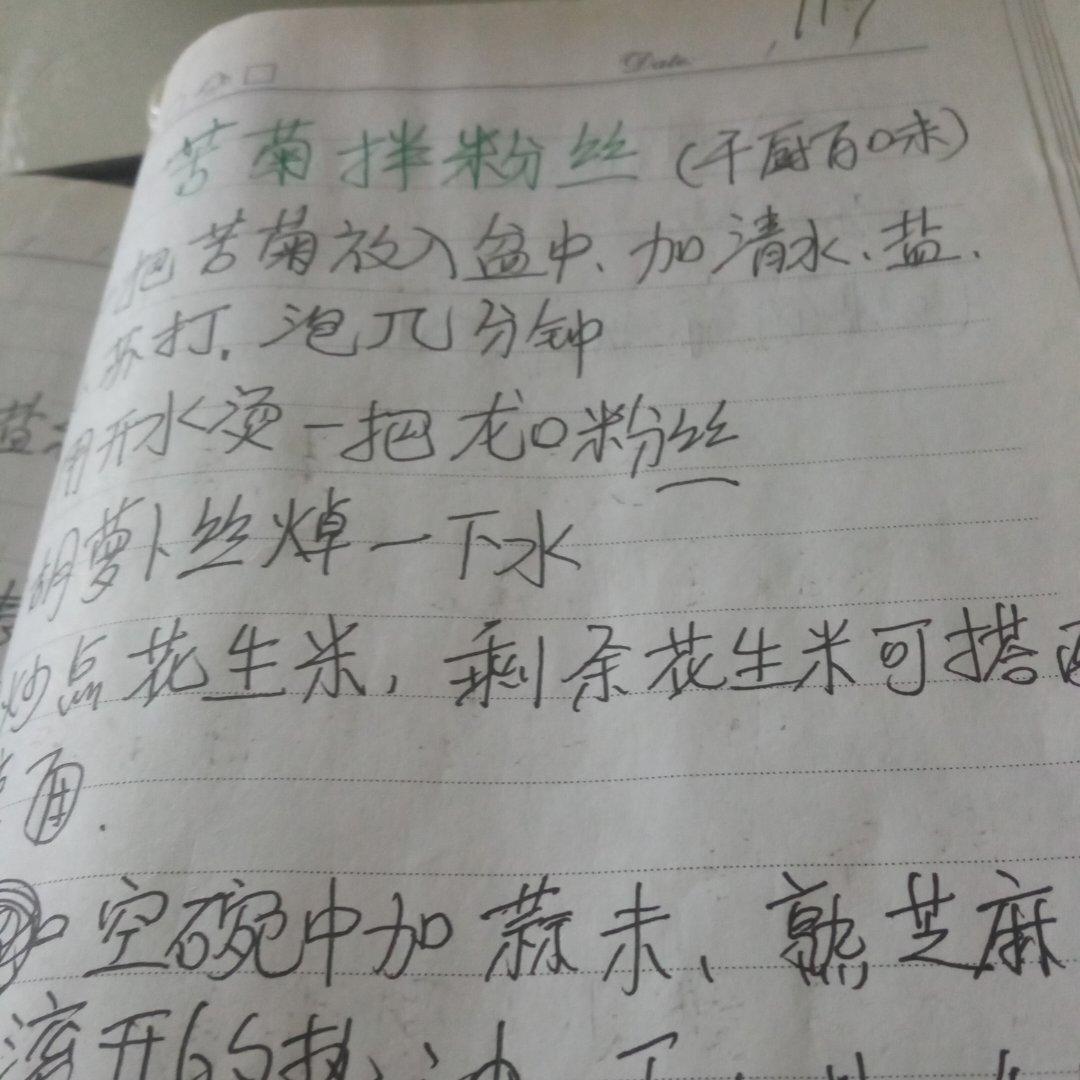 Date
苦菊拌粉丝(千厨百味)
把苦菊放入盆中、加清水、盐、
苏打,泡几分钟
用开水烫一把龙口粉丝
胡萝卜丝焯一下水
炒点花生米,剩余花生米可搭
面.
空碗中加蒜末、熟芝麻
滚开的热油